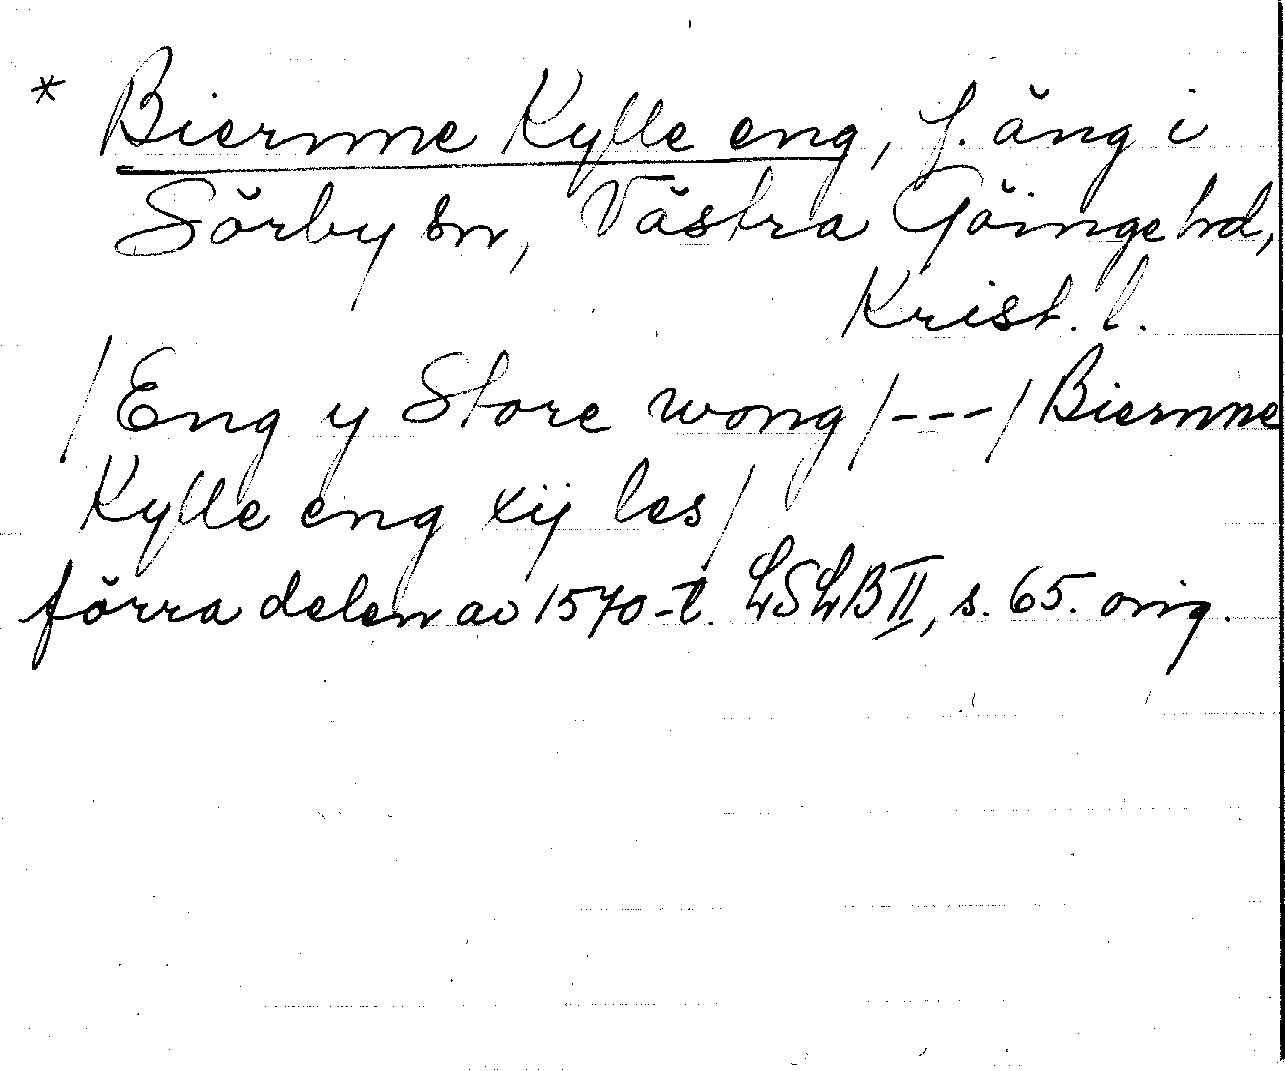 * Biernne Kylle eng, f. äng i
Sörby sn, Västra Göinge hd,
Krist. l.
/Eng y Store wong/---/Biernne
Kylle eng xij les/
förra delen av 1570-t. LSLB II, s. 65. orig.